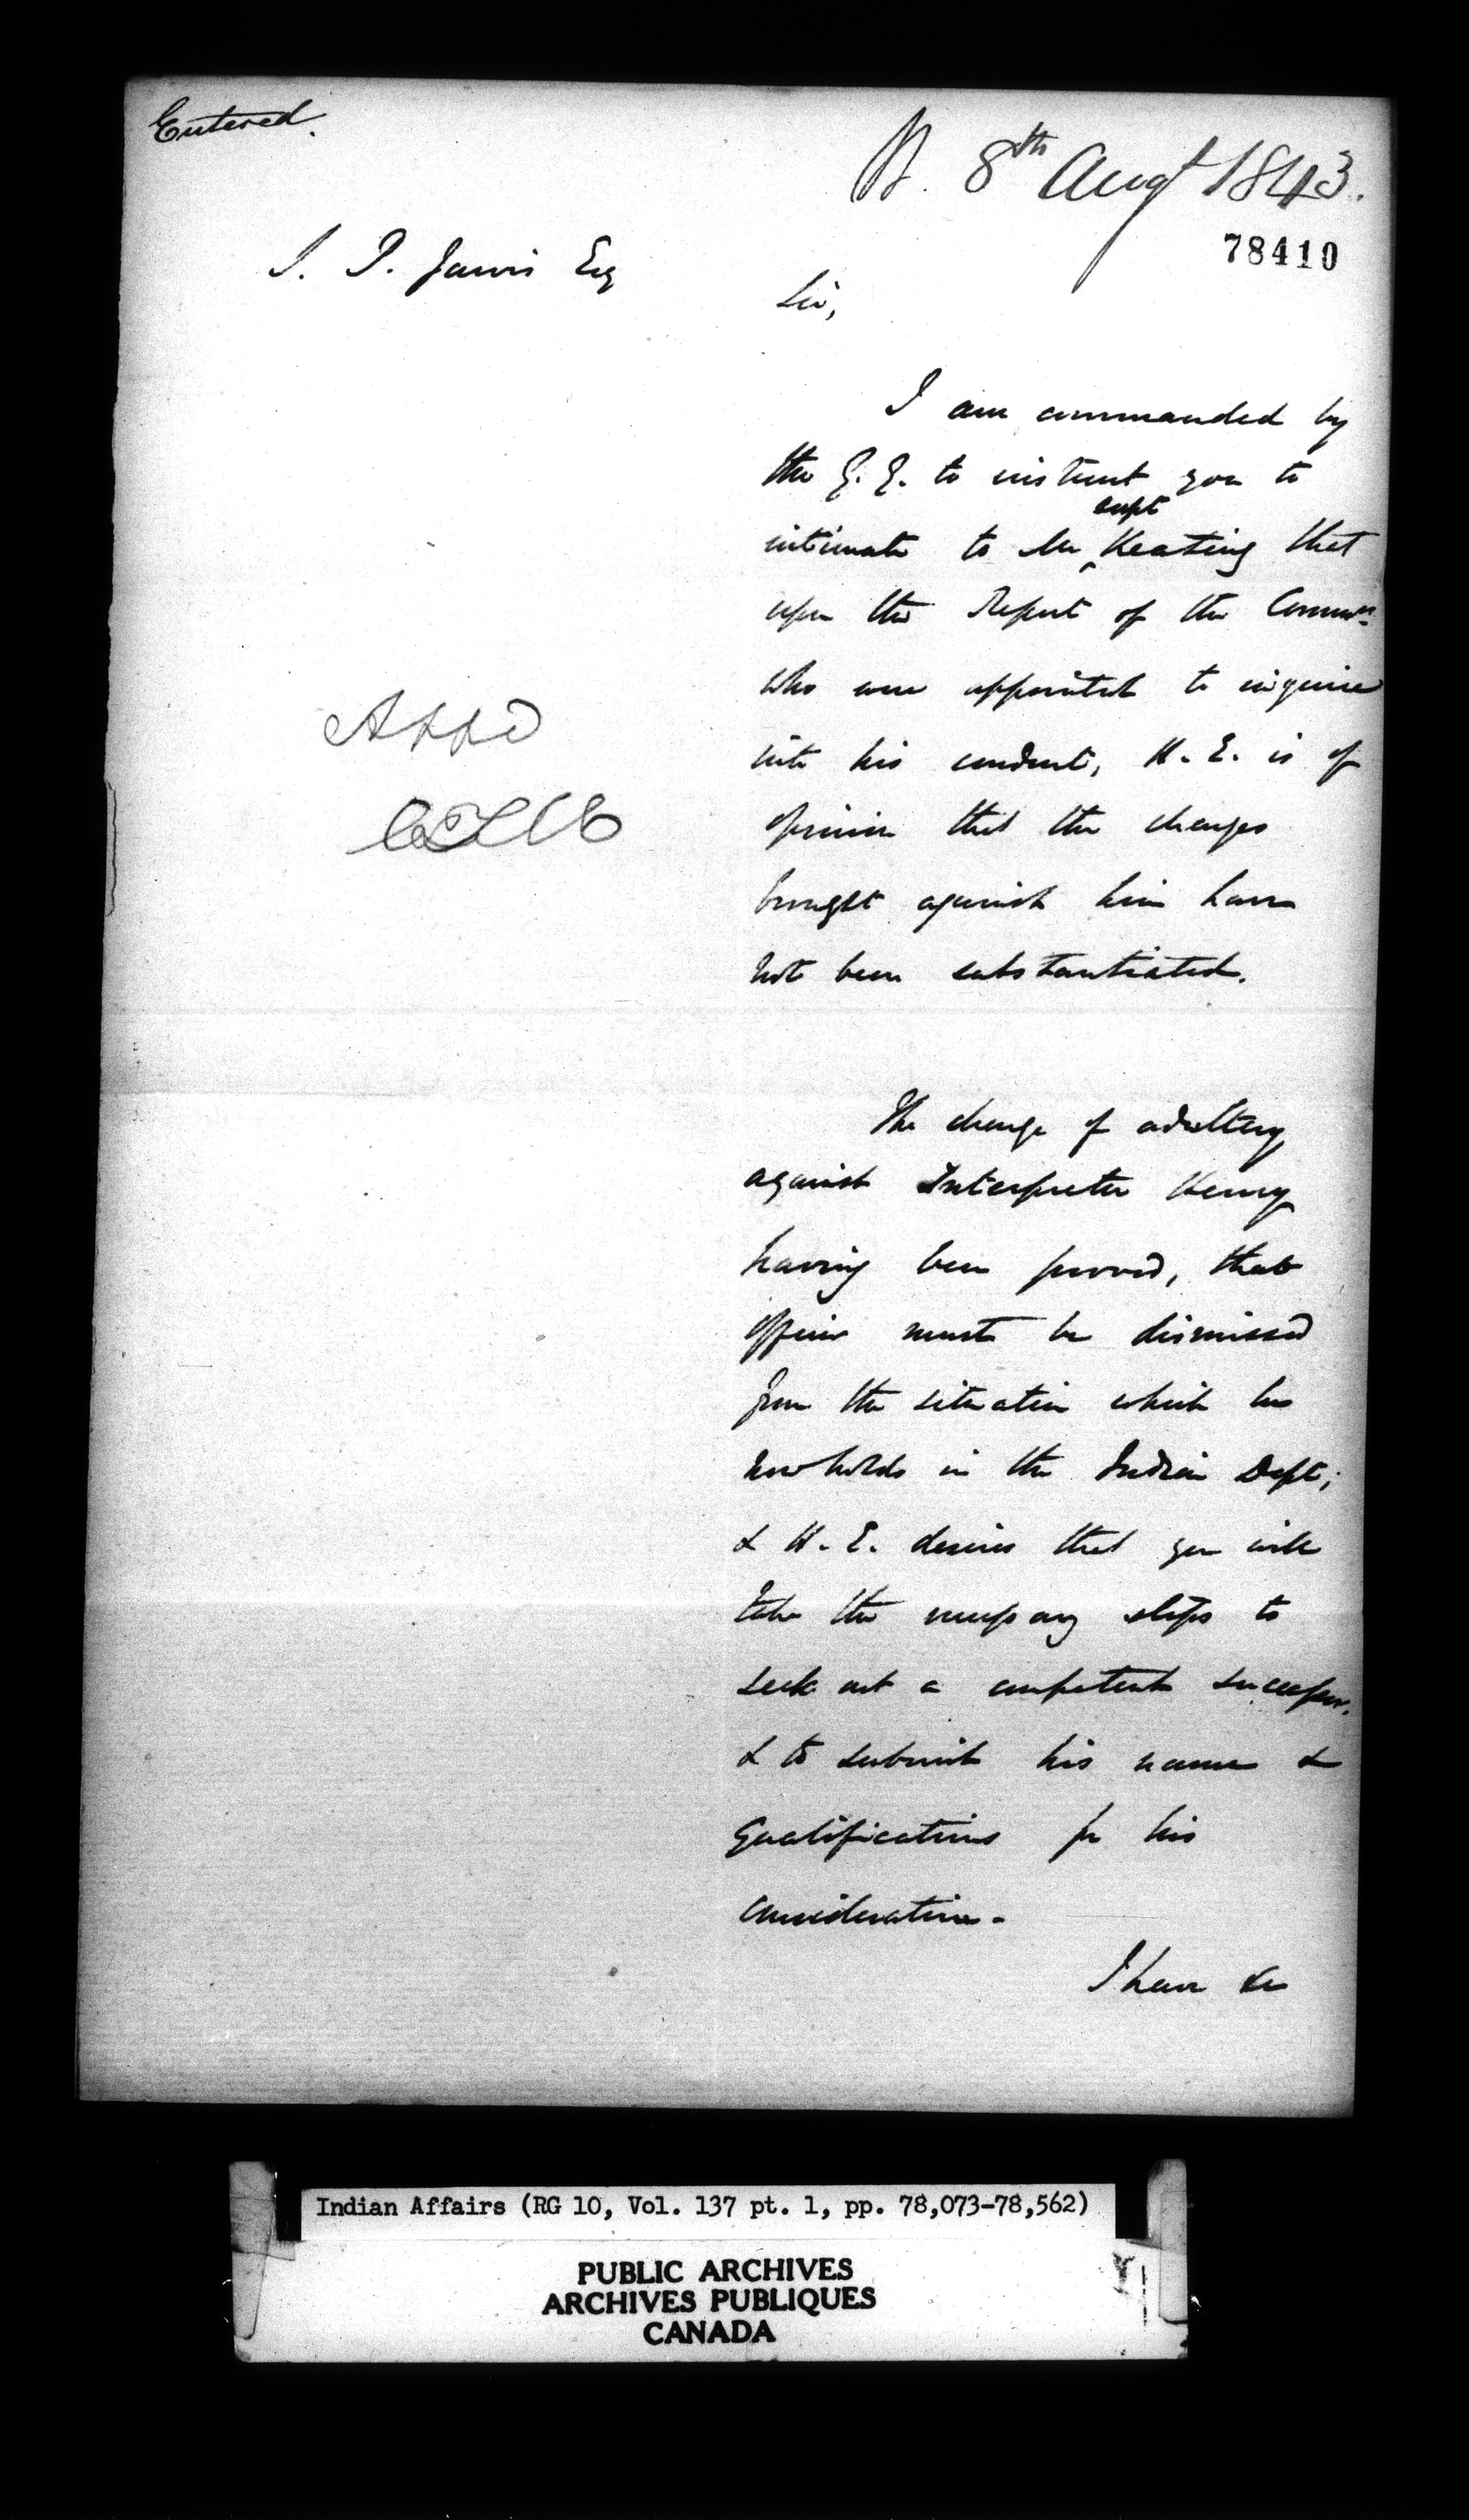 Entered.
8th Augt 1843.
78410
S. P. Jarvis Esq
Sir,
I am commanded by
the G. G. to instruct you to
supt
intimate to Mr Keating that
upon the Report of the Commrs
who were appointed to inquire
into his conduct, H. E. is of
opinion that the charges
brought against him have
not been substantiated.
Appd
The charge of adultery
against Interpreter Henry
having been proved, that
officer must be dismissed
from the situation which he
now holds in the Indian Dept;
& H. E. desires that you will
take the necessary steps to
seek out a competent successor.
& to submit his name &
qualifications for his
consideration -
I have &c
Indian Affairs (RG 10, Vol. 137 pt. 1, pp. 78,073-78,562)
PUBLIC ARCHIVES
ARCHIVES PUBLIQUES
CANADA